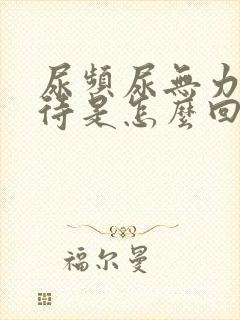 尿頻尿無力
待是怎麼回
福尔曼